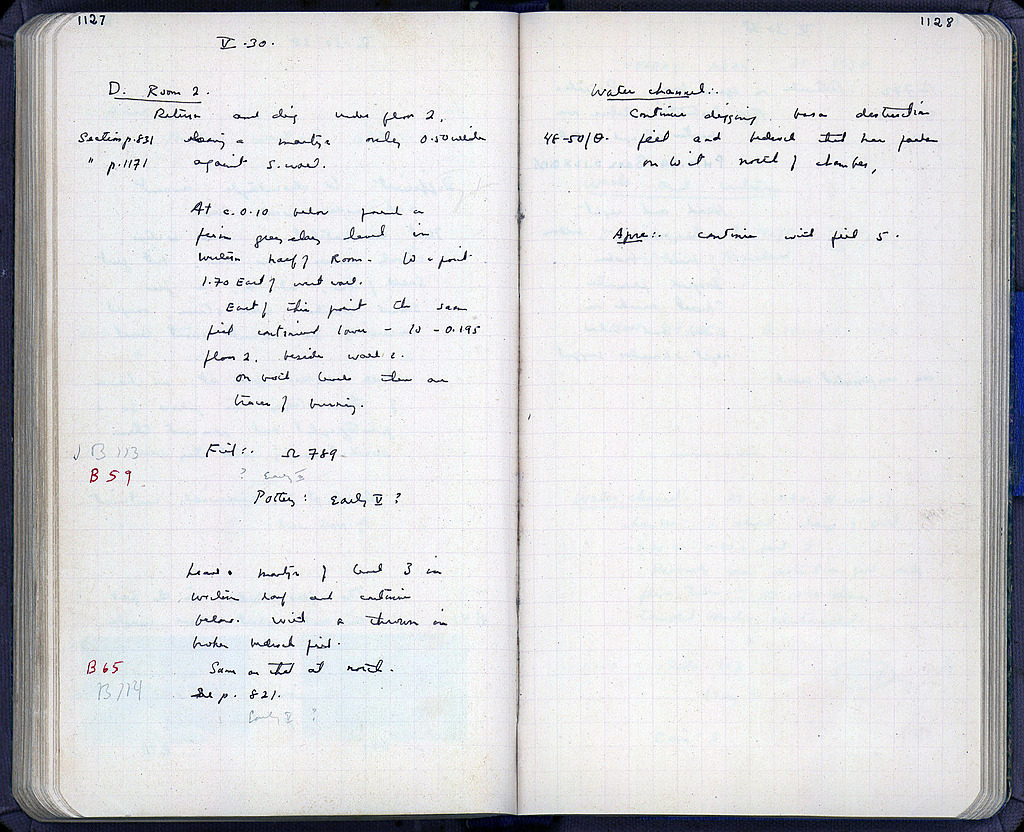 1127
V.30.
D. Room 2.
Return and dig under floor 2,
Section p.831 leaving a martyr only 0.50 wide
" p.1171 against S. wall.
At c. 0.10 below found a
firm grey clay level in
western half of Room - to a point
1.70 East of west wall.
East of this point the same
fill continued lower - to -0.195
floor 2. beside wall c.
on both levels there are
traces of burning.
B 113 Fill:. Ω 789.
B 59 ? Early V
Pottery: Early V ?
Leave martyr of level 3 in
western half and continue
below. with a thrown in
broken bedrock fill.
B 65 Same as that at north.
B 114 See p. 821.
Early V ?
1128
Water channel:.
Continue digging destruction
48-50/Θ. fill and bedrock that has fallen
in north of chamber,
Apse:. continue with fill 5.